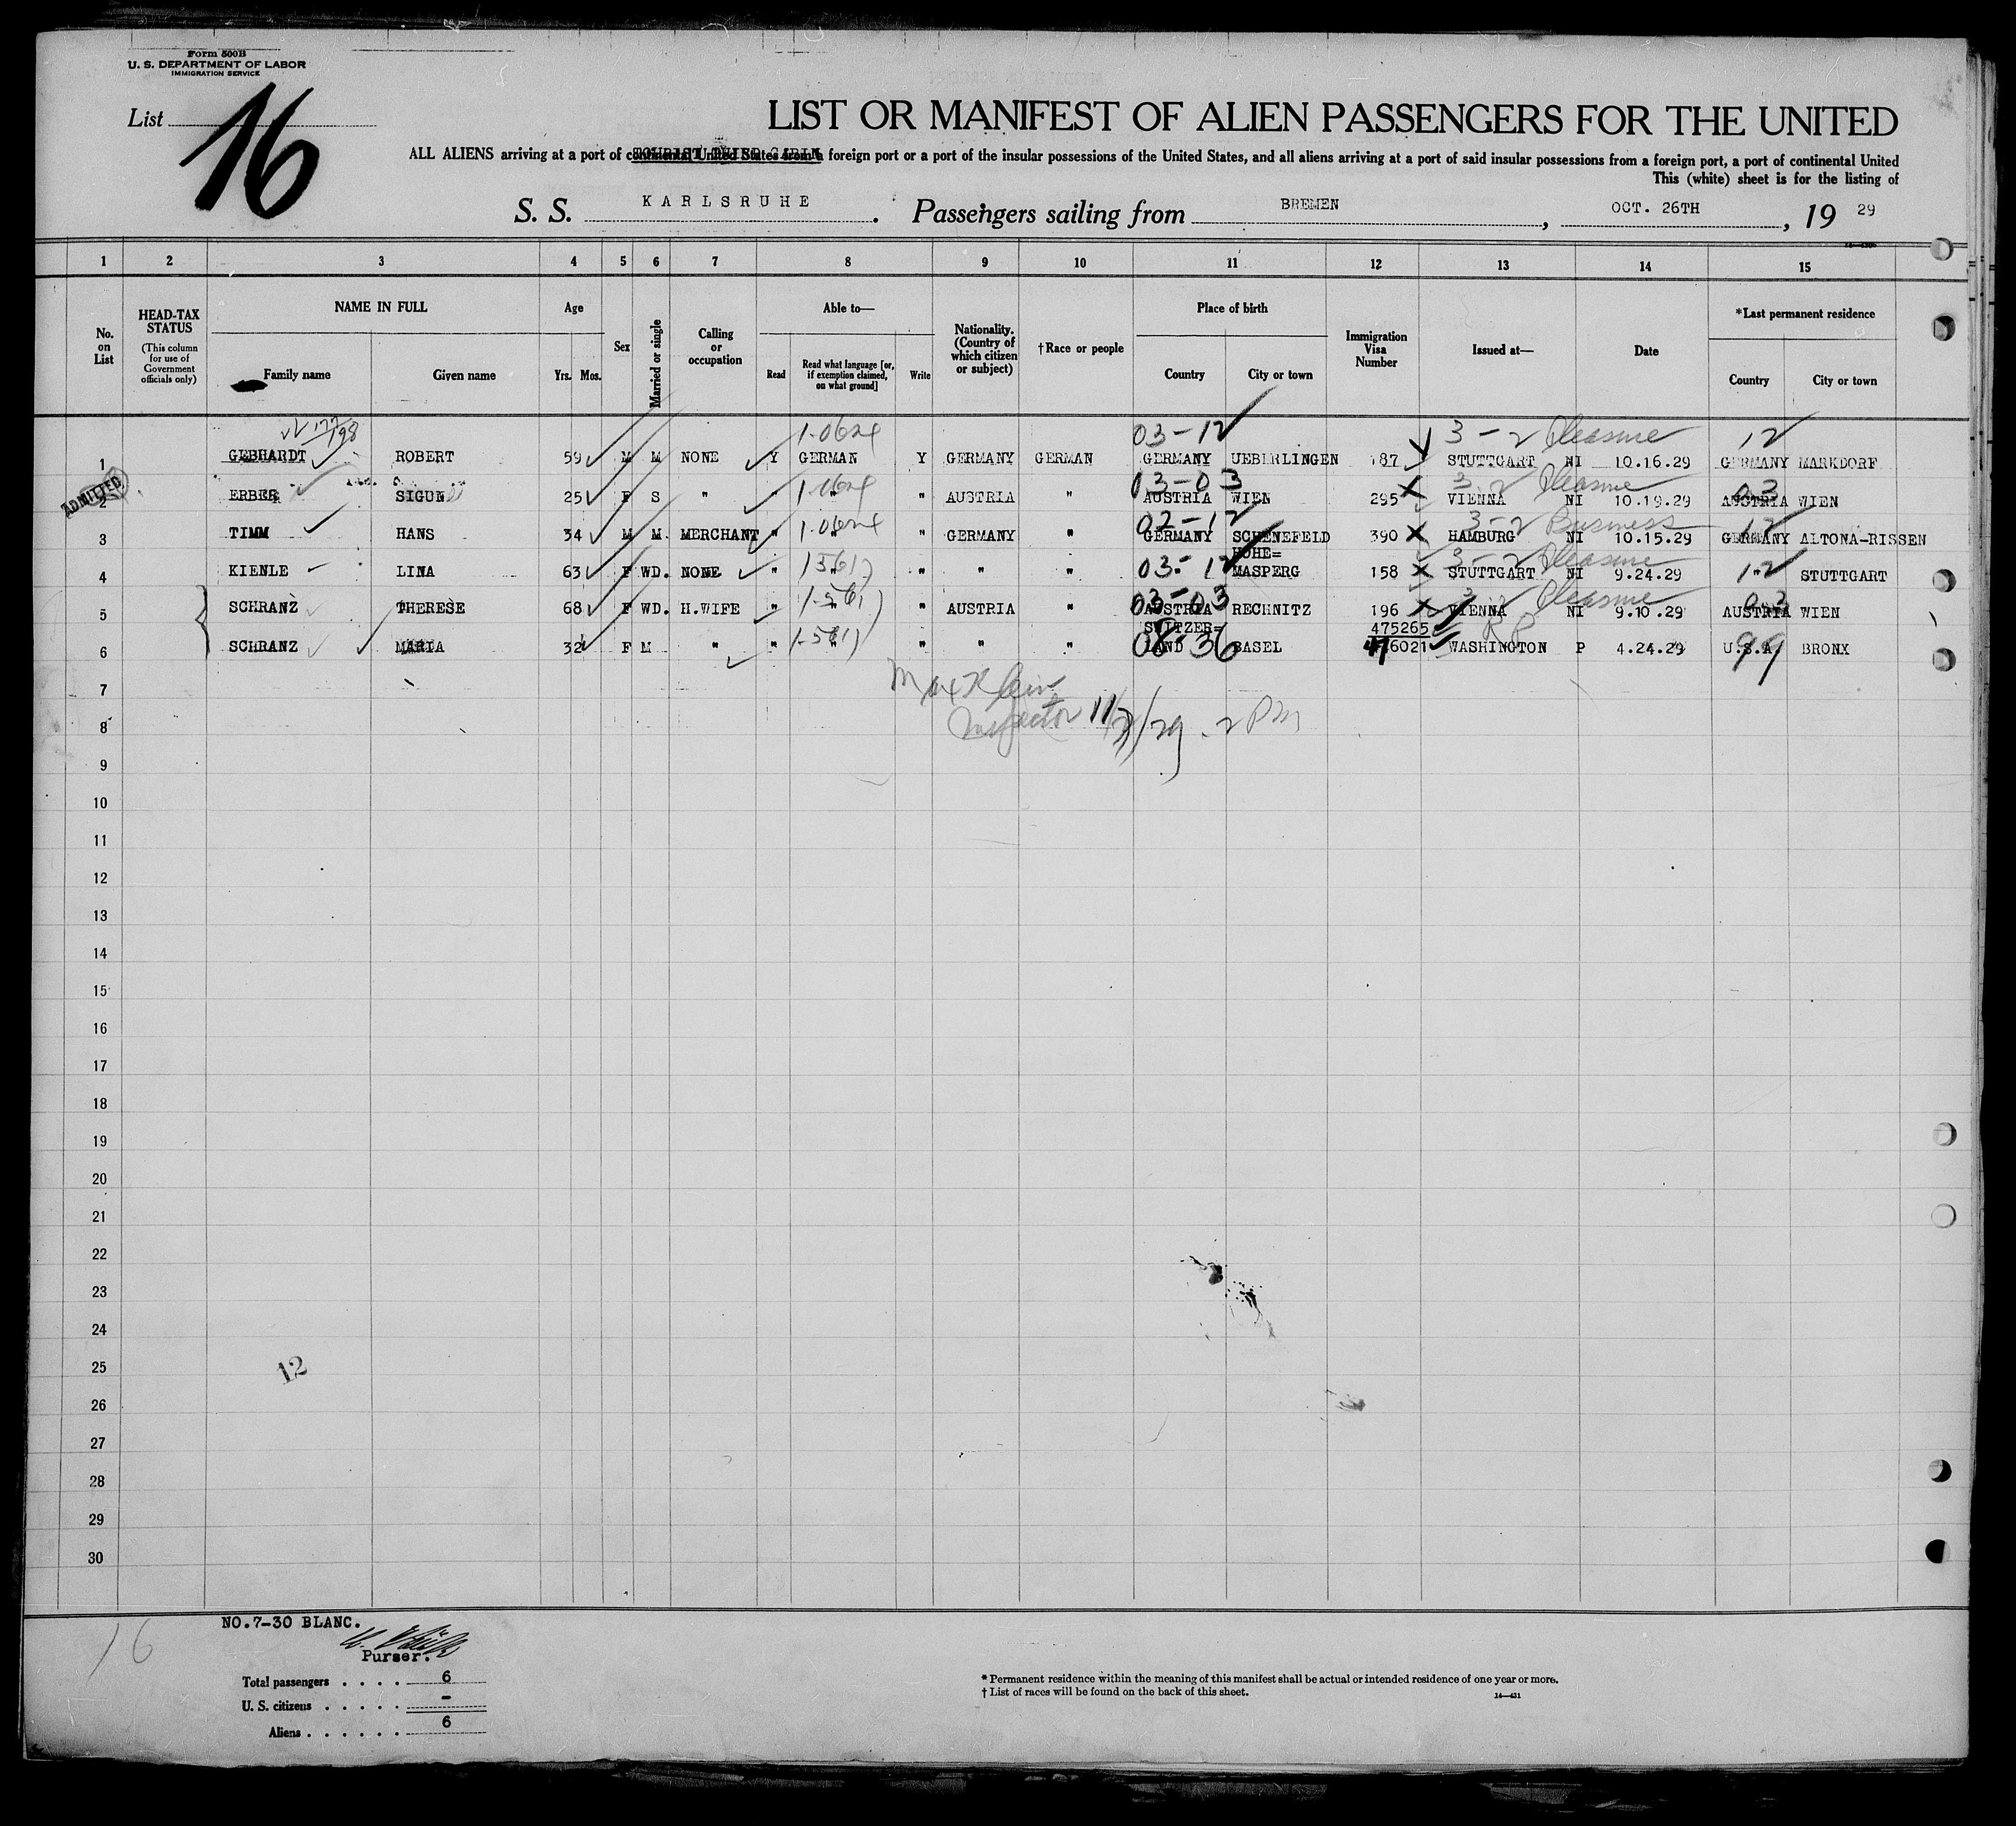 Form 500B
U. S. DEPARTMENT OF LABOR
IMMIGRATION SERVICE
List 16
LIST OR MANIFEST OF ALIEN PASSENGERS FOR THE UNITED
ALL ALIENS arriving at a port of continental United States from a foreign port or a port of the insular possessions of the United States, and all aliens arriving at a port of said insular possessions from a foreign port, a port of continental United
This (white) sheet is for the listing of
S. S. KARLSRUHE. Passengers sailing from BREMEN, OCT. 26TH, 19 29
1 2 3 4 5 6 7 8 9 10 11 12 13 14 15
No. on List
HEAD-TAX STATUS (This column for use of Government officials only)
NAME IN FULL Family name Given name
Age Yrs. Mos.
Sex
Married or single
Calling or occupation
Able to— Read Read what language [or, if exemption claimed, on what ground] Write
Nationality. (Country of which citizen or subject)
†Race or people
Place of birth Country City or town
Immigration Visa Number
Issued at—
Date
*Last permanent residence Country City or town
177/198 1-0624 03-12 3-2 Pleasure 12
1 GEBHARDT ROBERT 59 M M NONE Y GERMAN Y GERMANY GERMAN GERMANY UEBERLINGEN 187 STUTTGART NI 10.16.29 GERMANY MARKDORF
ADMITTED 03-03 3-2 Pleasure 03
2 ERBER SIGUN 25 F S " " " AUSTRIA " AUSTRIA WIEN 295 VIENNA NI 10.19.29 AUSTRIA WIEN
1-0624 02-12 3-2 Business 12
3 TIMM HANS 34 M M MERCHANT " " " GERMANY " GERMANY SCHENEFELD 390 HAMBURG NI 10.15.29 GERMANY ALTONA-RISSEN
03-12 3-2 Pleasure 12
4 KIENLE LINA 63 F WD. NONE " " " " " " HOHE=MASPERG 158 STUTTGART NI 9.24.29 " STUTTGART
03-03 Pleasure 03
5 SCHRANZ THERESE 68 F WD. H.WIFE " " " AUSTRIA " AUSTRIA RECHNITZ 196 VIENNA NI 9.10.29 AUSTRIA WIEN
08-36 RP 99
6 SCHRANZ MARIA 32 F M " " " " " " SWITZER=LAND BASEL 475265 476021 WASHINGTON P 4.24.29 U.S.A. BRONX
Max Klein
Inspector 11/7/29 - 2 PM
7
8
9
10
11
12
13
14
15
16
17
18
19
20
21
22
23
24
25
12
26
27
28
29
30
16
NO.7-30 BLANC.
Purser.
Total passengers . . . . 6
U. S. citizens . . . . . -
Aliens . . . . . . 6
* Permanent residence within the meaning of this manifest shall be actual or intended residence of one year or more.
† List of races will be found on the back of this sheet.
14—431